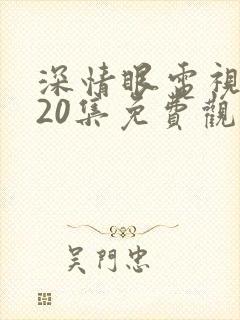 深情眼電視
20集免費觀
吴門忠